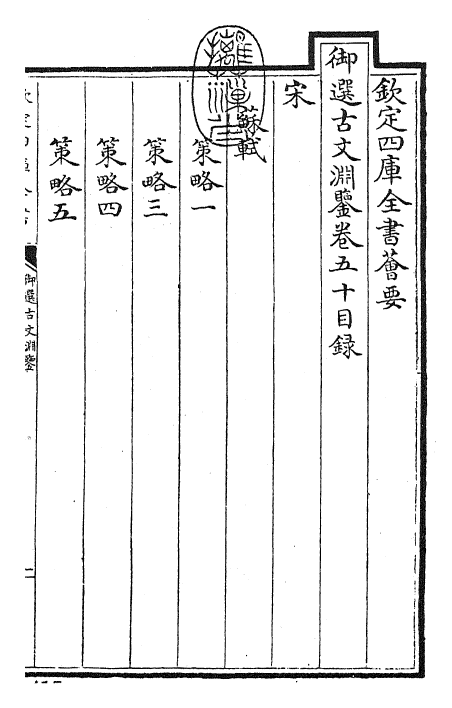 欽定四庫全書薈要
御選古文淵鑒卷五十目録
宋
蘇軾
策略一
策略三
策略四
策略五
御選古文淵鑒